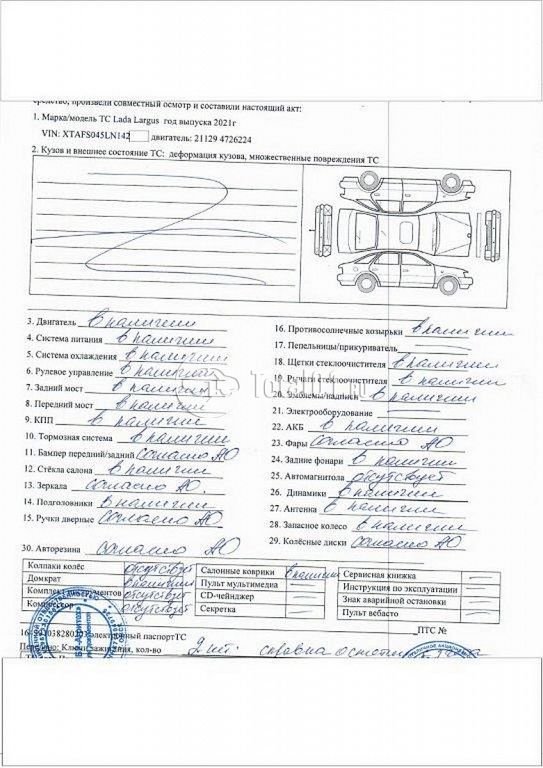 средство, произвели совместный осмотр и составили настоящий акт:
1. Марка/модель ТС Lada Largus год выпуска 2021г
VIN: XTAFS045LN142 двигатель: 21129 4726224
2. Кузов и внешнее состояние ТС: деформация кузова, множественные повреждения ТС
3. Двигатель в наличии
4. Система питания в наличии
5. Система охлаждения в наличии
6. Рулевое управление в наличии
7. Задний мост в наличии
8. Передний мост в наличии
9. КПП в наличии
10. Тормозная система в наличии
11. Бампер передний/задний согласно АО
12. Стёкла салона в наличии
13. Зеркала согласно АО.
14. Подголовники в наличии
15. Ручки дверные согласно АО
16. Противосолнечные козырьки в наличии
17. Пепельницы/прикуриватель
18. Щетки стеклоочистителя в наличии
19. Рычаги стеклоочистителя в наличии
20. Эмблемы/надписи в наличии
21. Электрооборудование
22. АКБ в наличии
23. Фары согласно АО
24. Задние фонари в наличии
25. Автомагнитола отсутствует
26. Динамики в наличии
27. Антенна в наличии
28. Запасное колесо в наличии
29. Колёсные диски согласно АО
30. Авторезина согласно АО
Колпаки колёс отсутствует Салонные коврики в наличии Сервисная книжка
Домкрат в наличии Пульт мультимедиа Инструкция по эксплуатации
отсутствует CD-чейнджер Знак аварийной остановки
отсутствует Секретка Пульт вебасто
электронный паспортТС ПТС №
Ключи зажигания, кол-во 2 шт. справка